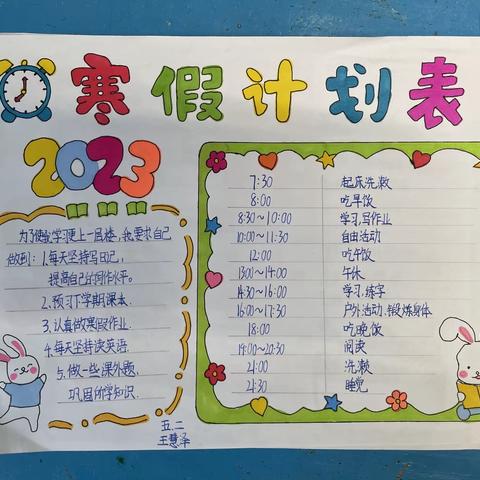 寒假计划表
2023
为了使我学习更上一层楼,我要求自己
做到:1.每天坚持写日记,
提高自己的写作水平。
2.预习下学期课本.
3.认真做寒假作业.
4.每天坚持读英语.
5.做一些课外题,
巩固所学知识.
五.二
王慧泽
7:30 起床洗漱
8:00 吃早饭
8:30~10:00 学习,写作业
10:00~11:30 自由活动
12:00 吃午饭
13:00~14:00 午休
14:30~16:00 学习,练字
16:00~17:30 户外活动.锻炼身体
18:00 吃晚饭
19:00~20:30 阅读
21:00 洗漱
21:30 睡觉